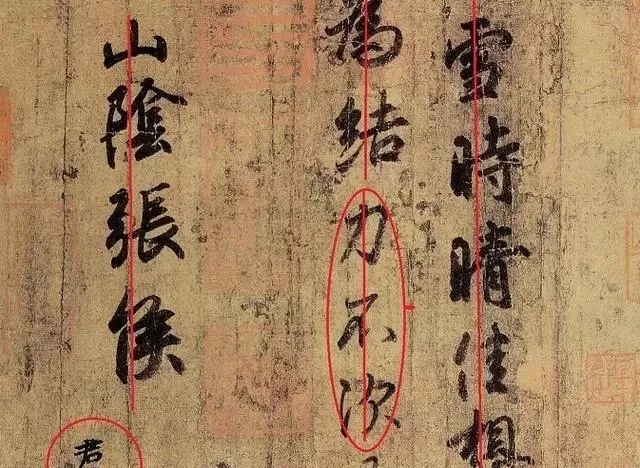 雪時晴佳想
為結力不次
山陰張侯
君